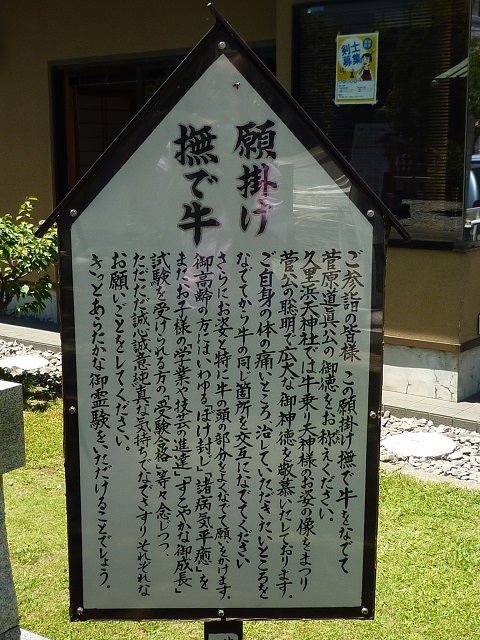 願掛け
撫で牛
ご参詣の皆様 この願掛け撫で牛をなでて
菅原道真公の御徳をお称えください。
久里浜天神社では牛乗り天神様のお姿の像をまつり
菅公の聡明で広大な御神徳を敬慕いたしております。
ご自身の体の痛いところ治していただきたいところを
なでてから牛の同じ箇所を交互になでてください
さらにお姿と特に牛の頭の部分をよくなでて願いをかけます。
御高齢の方には、いわゆる「ぼけ封じ」「諸病気平癒」を
また、お子様の「学業や技芸の進達」「すこやかな御成長」
試験を受けられる方の「受験合格」等々念じつつ、
ただただ誠心誠意純真な気持ちでなでさすりそれぞれな
お願いごとをしてください。
きっとあらたかな御霊験をいただけることでしょう。
剣士
募集